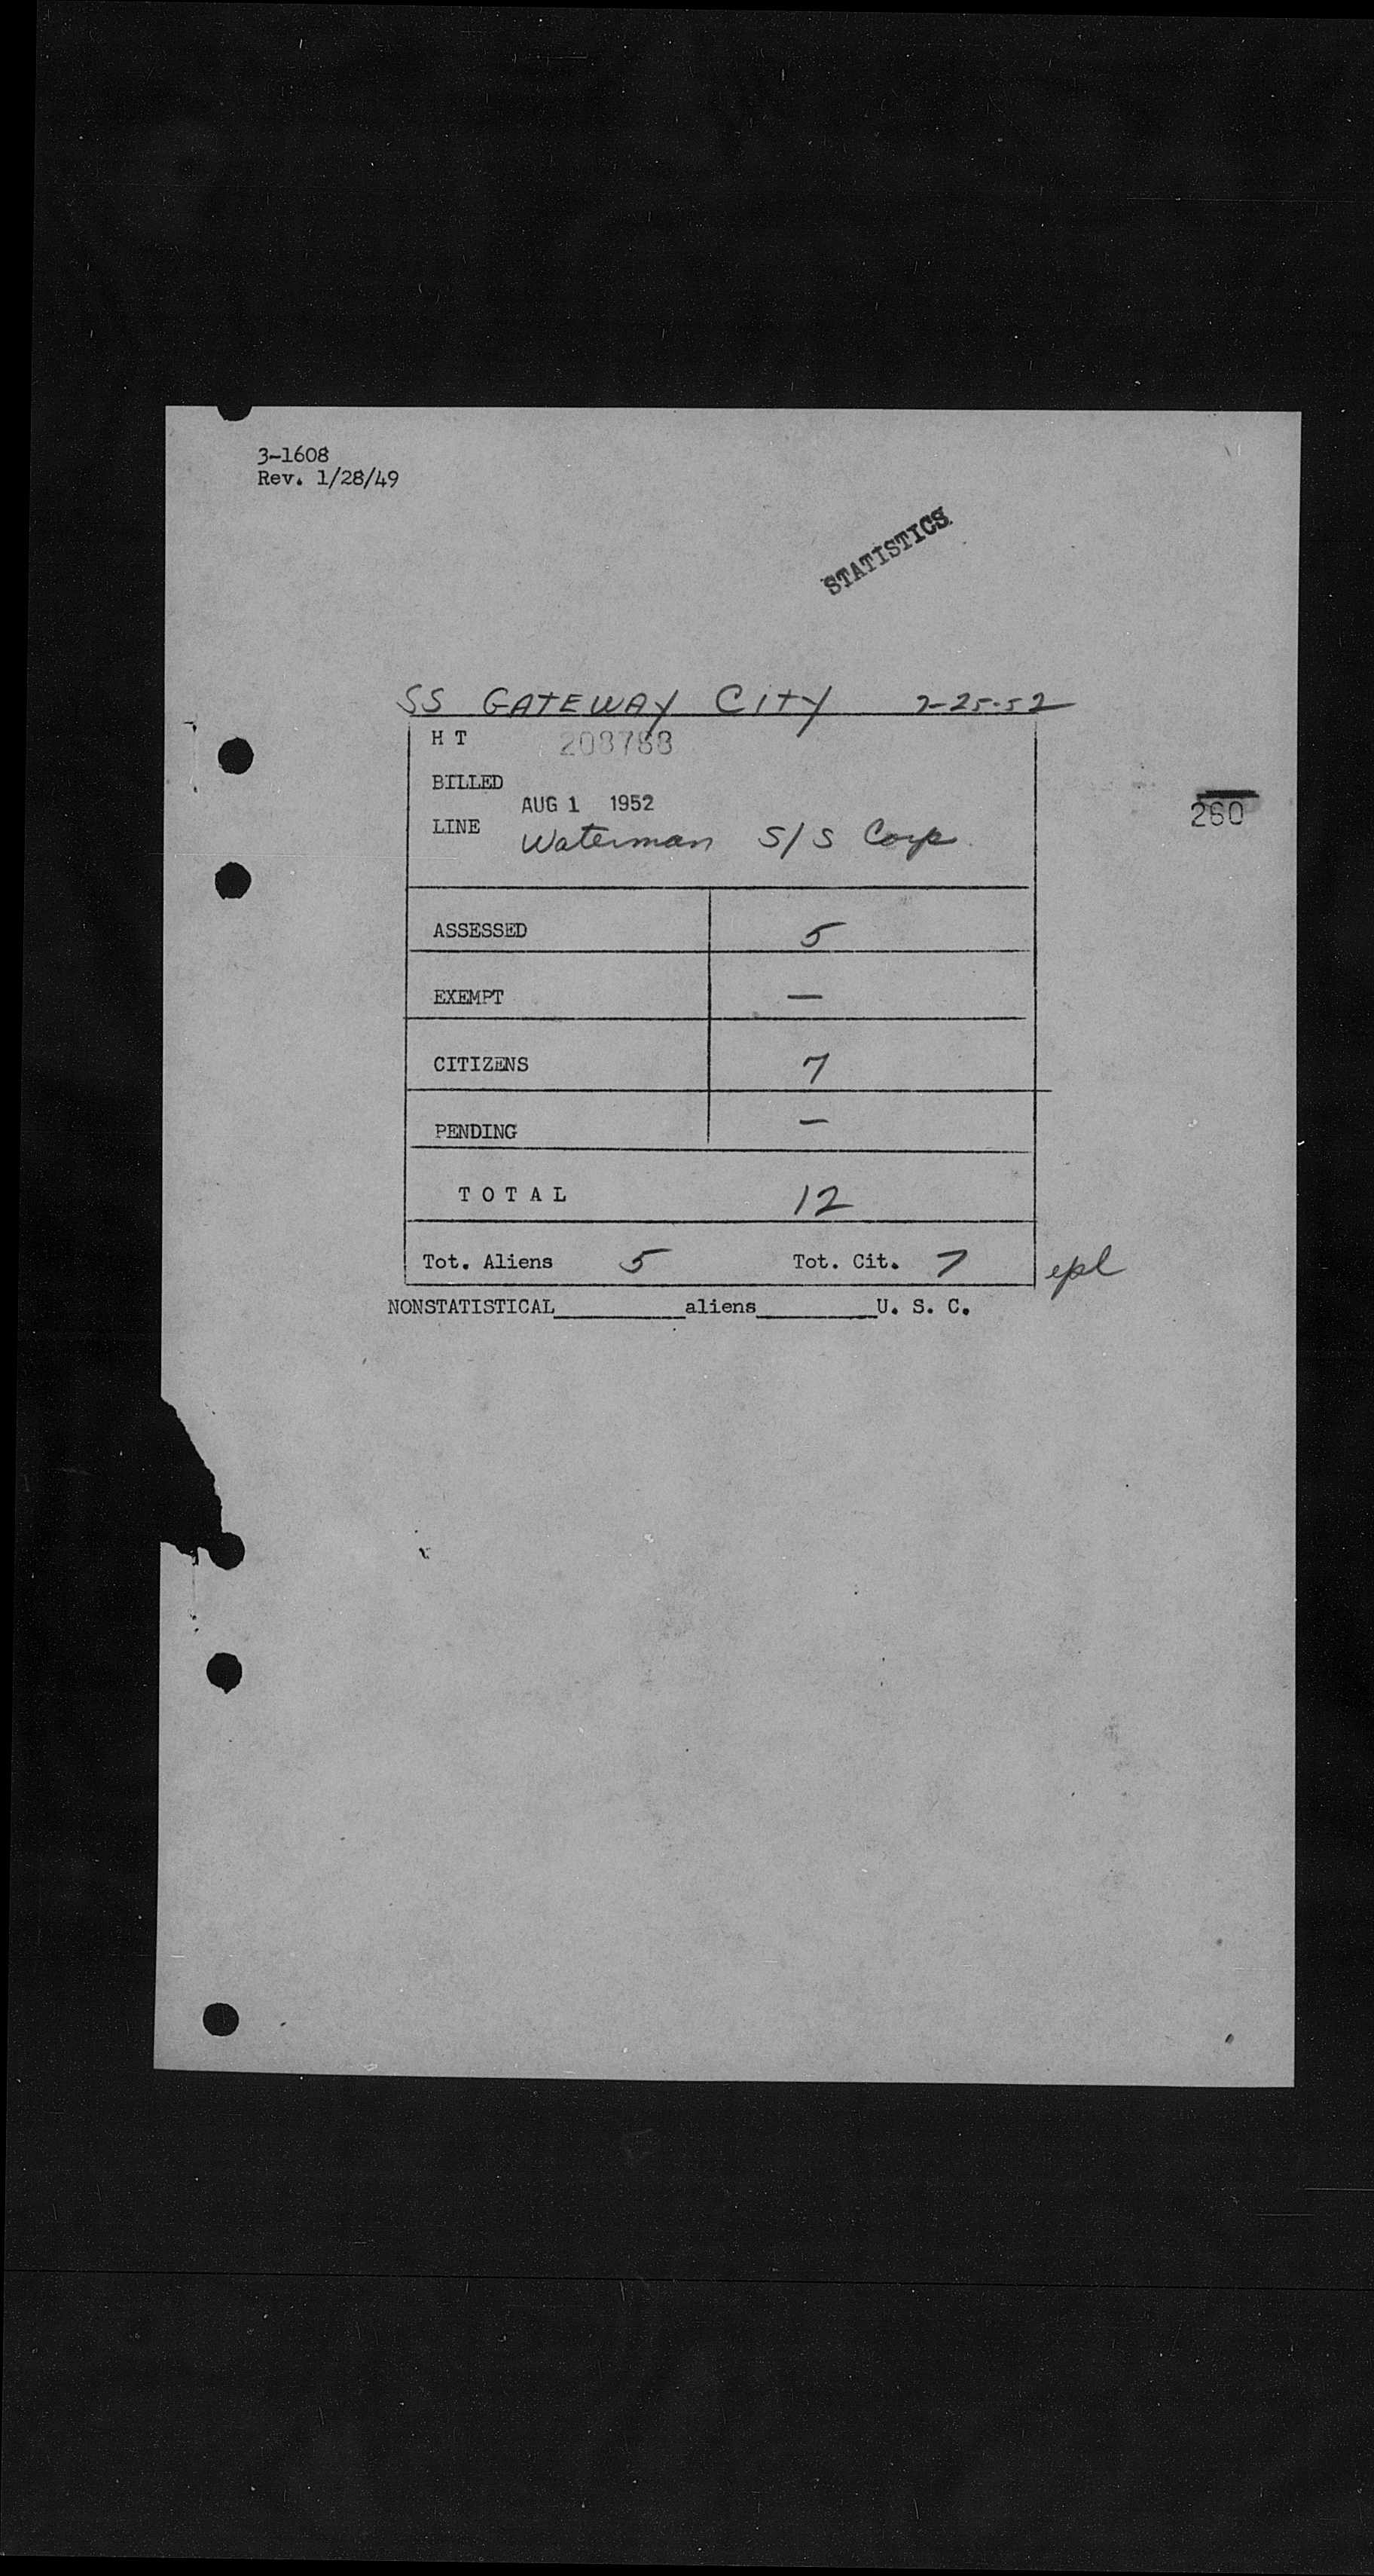 3-1608
Rev. 1/28/49
STATISTICS
SS GATEWAY CITY 7-25-52
H T 208788
BILLED
AUG 1 1952
LINE Waterman S/S Corp.
260
ASSESSED 5
EXEMPT —
CITIZENS 7
PENDING —
T O T A L 12
Tot. Aliens 5 Tot. Cit. 7 epl
NONSTATISTICAL________aliens________U. S. C.